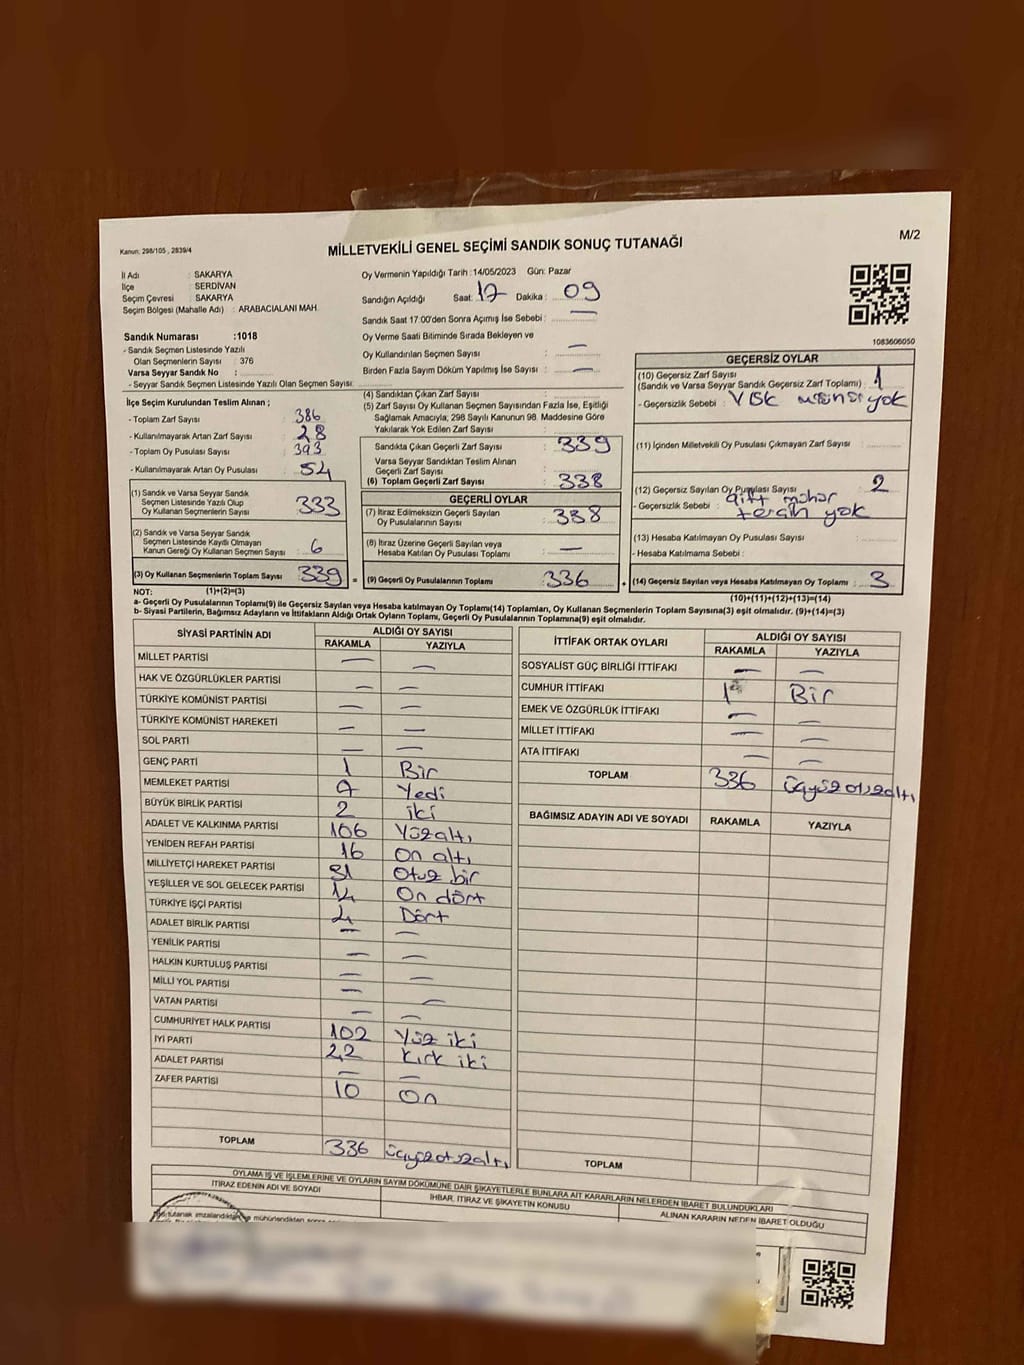 Kanun: 298/105 , 2839/4
MİLLETVEKİLİ GENEL SEÇİMİ SANDIK SONUÇ TUTANAĞI
M/2
İl Adı : SAKARYA
İlçe : SERDİVAN
Seçim Çevresi : SAKARYA
Seçim Bölgesi (Mahalle Adı) : ARABACIALANI MAH.
Oy Vermenin Yapıldığı Tarih :14/05/2023 Gün: Pazar
Sandığın Açıldığı Saat: 17 Dakika : 09
Sandık Saat 17:00'den Sonra Açımış İse Sebebi : —
Sandık Numarası :1018
- Sandık Seçmen Listesinde Yazılı
Olan Seçmenlerin Sayısı : 376
Varsa Seyyar Sandık No :
- Seyyar Sandık Seçmen Listesinde Yazılı Olan Seçmen Sayısı:
Oy Verme Saati Bitiminde Sırada Bekleyen ve
Oy Kullandırılan Seçmen Sayısı : —
Birden Fazla Sayım Döküm Yapılmış İse Sayısı : —
1083606050
İlçe Seçim Kurulundan Teslim Alınan ;
- Toplam Zarf Sayısı : 386
- Kullanılmayarak Artan Zarf Sayısı : 28
- Toplam Oy Pusulası Sayısı : 393
- Kullanılmayarak Artan Oy Pusulası : 54
(1) Sandık ve Varsa Seyyar Sandık
Seçmen Listesinde Yazılı Olup
Oy Kullanan Seçmenlerin Sayısı : 333
(2) Sandık ve Varsa Seyyar Sandık
Seçmen Listesinde Kayıtlı Olmayan
Kanun Gereği Oy Kullanan Seçmen Sayısı : 6
(3) Oy Kullanan Seçmenlerin Toplam Sayısı : 339
(4) Sandıktan Çıkan Zarf Sayısı :
(5) Zarf Sayısı Oy Kullanan Seçmen Sayısından Fazla İse, Eşitliği
Sağlamak Amacıyla; 298 Sayılı Kanunun 98. Maddesine Göre
Yakılarak Yok Edilen Zarf Sayısı :
Sandıkta Çıkan Geçerli Zarf Sayısı : 339
Varsa Seyyar Sandıktan Teslim Alınan
Geçerli Zarf Sayısı :
(6) Toplam Geçerli Zarf Sayısı : 338
GEÇERLİ OYLAR
(7) İtiraz Edilmeksizin Geçerli Sayılan
Oy Pusulalarının Sayısı : 338
(8) İtiraz Üzerine Geçerli Sayılan veya
Hesaba Katılan Oy Pusulası Toplamı : —
= (9) Geçerli Oy Pusulalarının Toplamı : 336
GEÇERSİZ OYLAR
(10) Geçersiz Zarf Sayısı
(Sandık ve Varsa Seyyar Sandık Geçersiz Zarf Toplamı) : 1
- Geçersizlik Sebebi : YSK mührü yok
(11) İçinden Milletvekili Oy Pusulası Çıkmayan Zarf Sayısı :
(12) Geçersiz Sayılan Oy Pusulası Sayısı : 2
- Geçersizlik Sebebi : çift mühür
tercih yok
(13) Hesaba Katılmayan Oy Pusulası Sayısı :
- Hesaba Katılmama Sebebi :
+ (14) Geçersiz Sayılan veya Hesaba Katılmayan Oy Toplamı : 3
NOT: (1)+(2)=(3)
(10)+(11)+(12)+(13)=(14)
a- Geçerli Oy Pusulalarının Toplamı(9) ile Geçersiz Sayılan veya Hesaba katılmayan Oy Toplamı(14) Toplamları, Oy Kullanan Seçmenlerin Toplam Sayısına(3) eşit olmalıdır. (9)+(14)=(3)
b- Siyasi Partilerin, Bağımsız Adayların ve İttifakların Aldığı Ortak Oyların Toplamı, Geçerli Oy Pusulalarının Toplamına(9) eşit olmalıdır.
SİYASİ PARTİNİN ADI ALDIĞI OY SAYISI
RAKAMLA YAZIYLA
MİLLET PARTİSİ — —
HAK VE ÖZGÜRLÜKLER PARTİSİ — —
TÜRKİYE KOMÜNİST PARTİSİ — —
TÜRKİYE KOMÜNİST HAREKETİ — —
SOL PARTİ — —
GENÇ PARTİ 1 Bir
MEMLEKET PARTİSİ 7 Yedi
BÜYÜK BİRLİK PARTİSİ 2 iki
ADALET VE KALKINMA PARTİSİ 106 Yüzaltı
YENİDEN REFAH PARTİSİ 16 On altı
MİLLİYETÇİ HAREKET PARTİSİ 31 Otuz bir
YEŞİLLER VE SOL GELECEK PARTİSİ 14 On dört
TÜRKİYE İŞÇİ PARTİSİ 4 Dört
ADALET BİRLİK PARTİSİ — —
YENİLİK PARTİSİ
HALKIN KURTULUŞ PARTİSİ — —
MİLLİ YOL PARTİSİ — —
VATAN PARTİSİ — —
CUMHURİYET HALK PARTİSİ 102 Yüz iki
İYİ PARTİ 42 Kırk iki
ADALET PARTİSİ — —
ZAFER PARTİSİ 10 On
TOPLAM 336 üçyüzotuzaltı
İTTİFAK ORTAK OYLARI ALDIĞI OY SAYISI
RAKAMLA YAZIYLA
SOSYALİST GÜÇ BİRLİĞİ İTTİFAKI — —
CUMHUR İTTİFAKI 1 Bir
EMEK VE ÖZGÜRLÜK İTTİFAKI — —
MİLLET İTTİFAKI — —
ATA İTTİFAKI — —
TOPLAM 336 üçyüzotuzaltı
BAĞIMSIZ ADAYIN ADI VE SOYADI RAKAMLA YAZIYLA
TOPLAM
OYLAMA İŞ VE İŞLEMLERİNE VE OYLARIN SAYIM DÖKÜMÜNE DAİR ŞİKAYETLERLE BUNLARA AİT KARARLARIN NELERDEN İBARET BULUNDUKLARI
İTİRAZ EDENİN ADI VE SOYADI İHBAR, İTİRAZ VE ŞİKAYETİN KONUSU ALINAN KARARIN NEDEN İBARET OLDUĞU